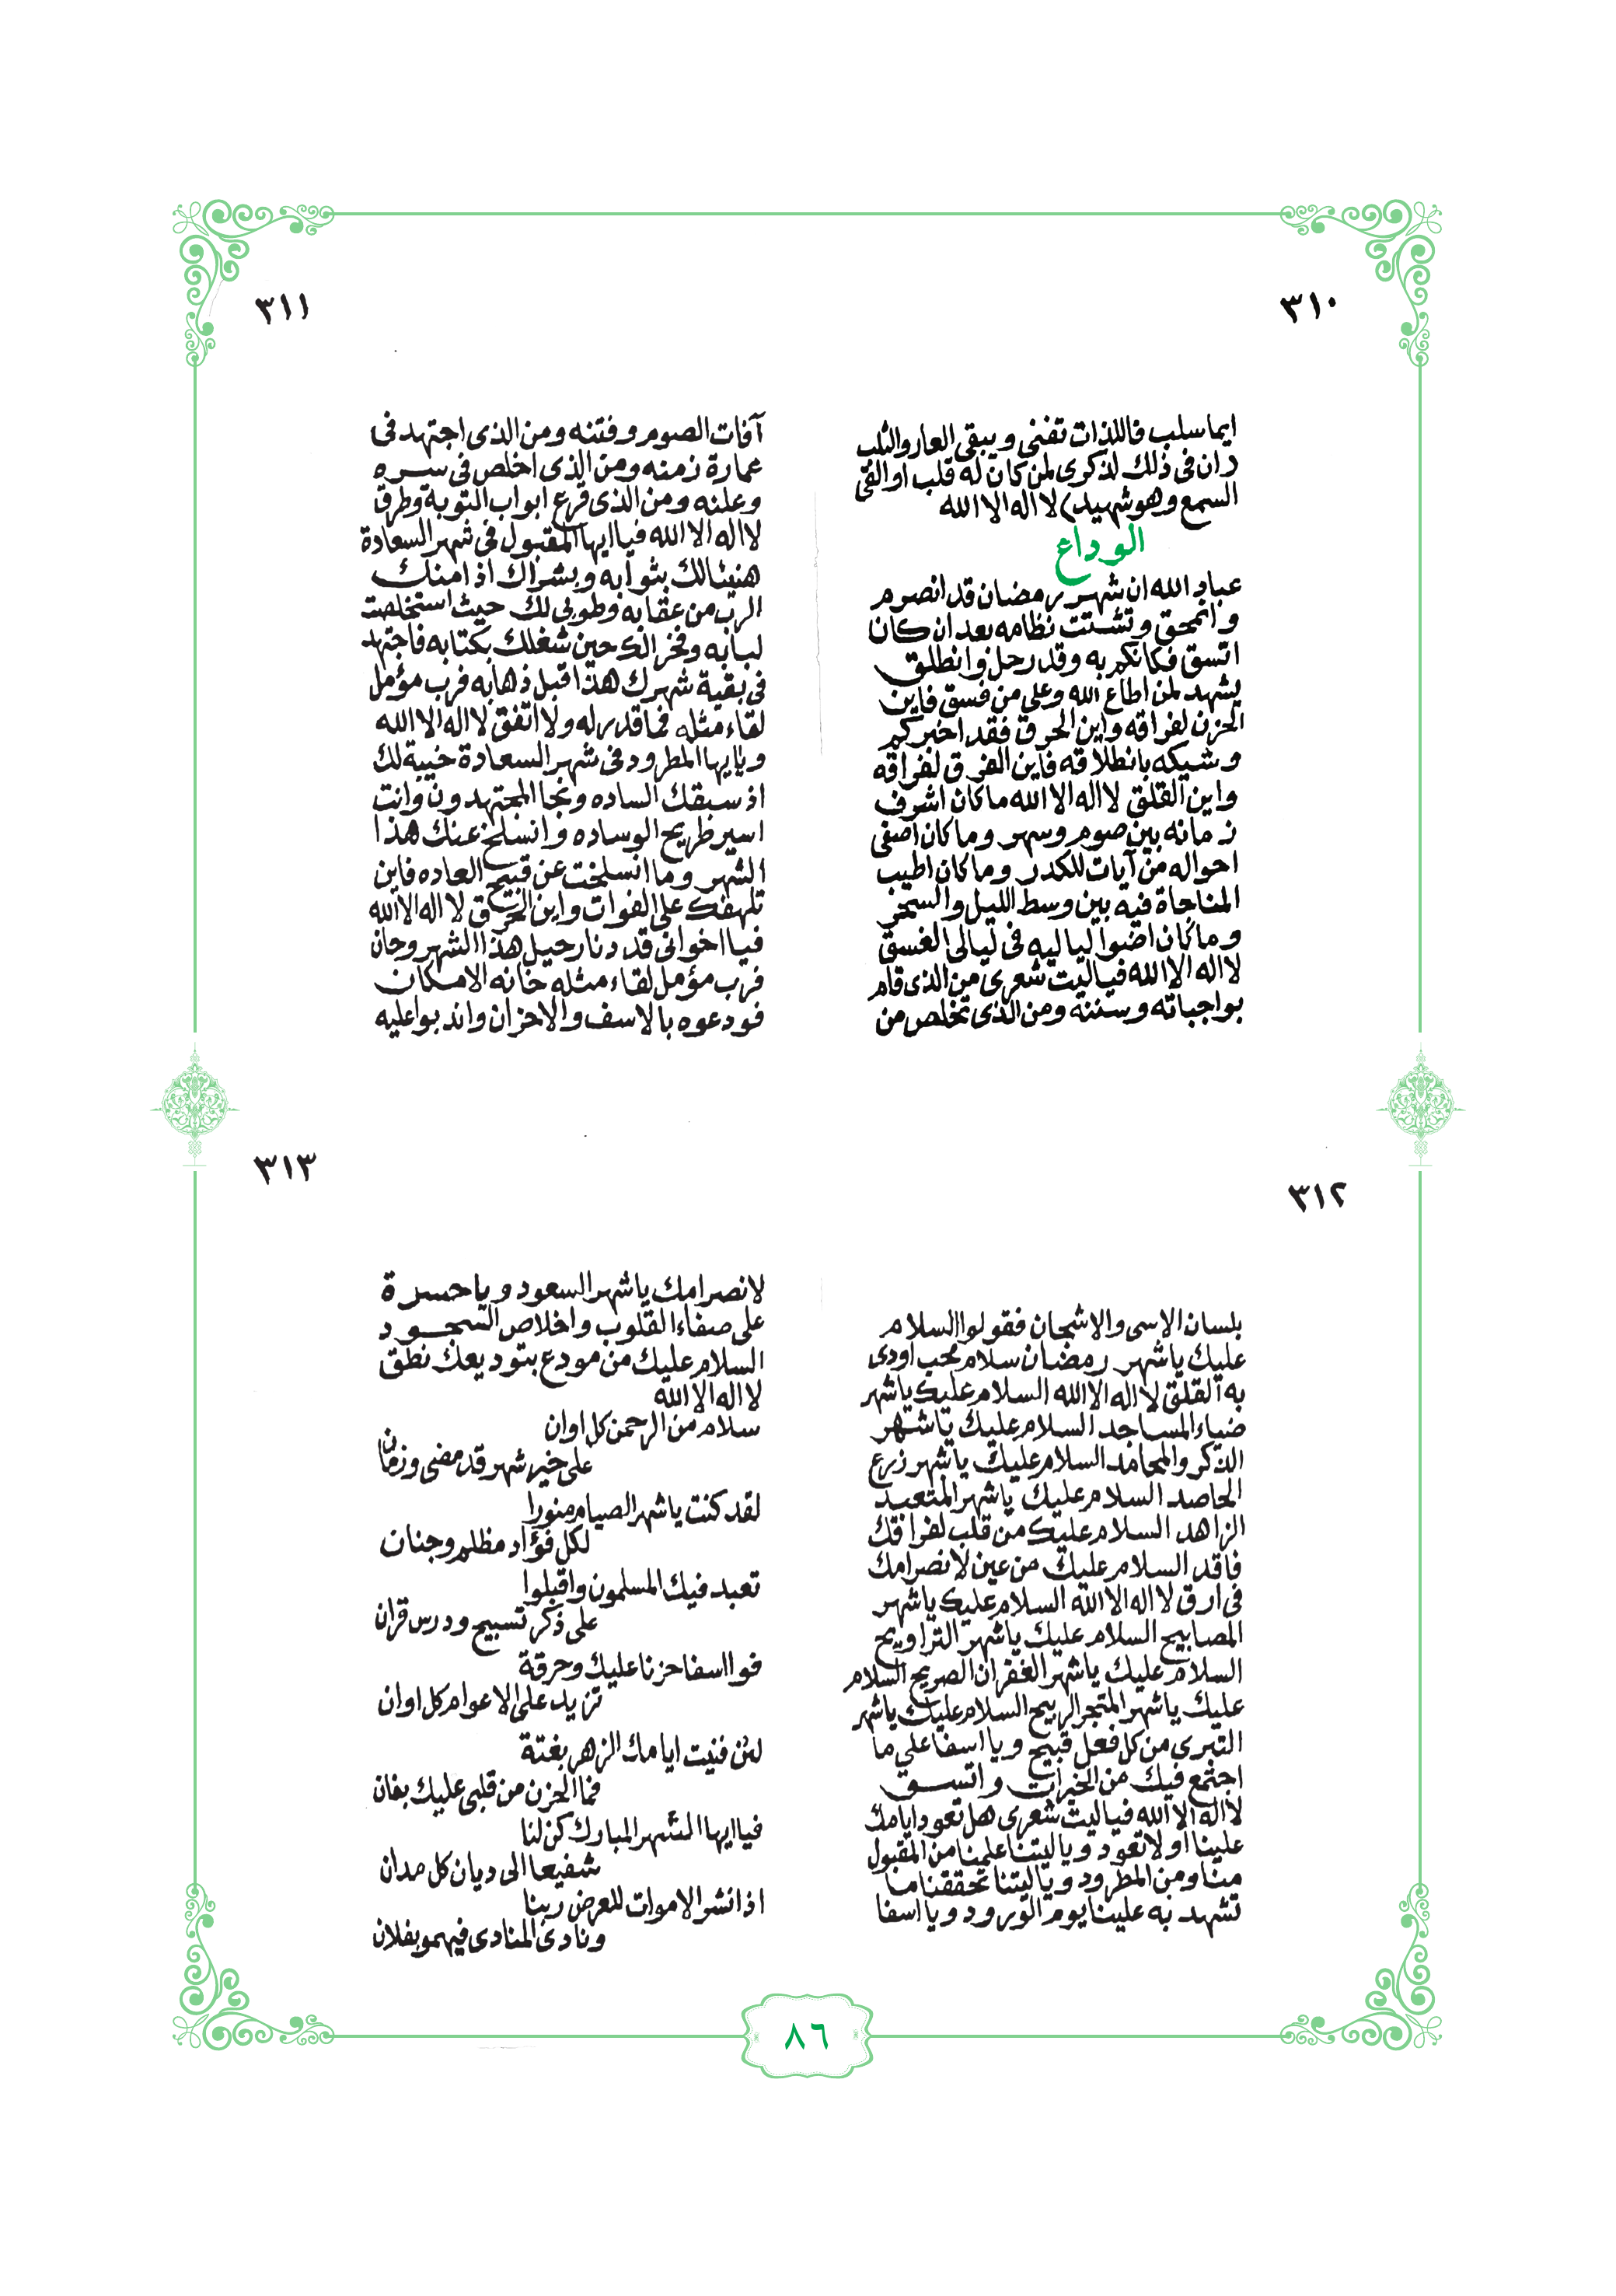 ٣١٠
ايما سلب فاللذات تفنى ويبقى العار والثلب
(ان فى ذلك لذكرى لمن كان له قلب او القى
السمع وهو شهيد) لا اله الا الله
الوداع
عباد الله ان شهر رمضان قد انصرم
وانمحق وتشتت نظامه بعد ان كان
اتسق فكانكم به وقد رحل وانطلق
يشهد لمن اطاع الله وعلى من فسق فاين
الحزن لفراقه واين الحرق فقد اخبركم
وشيكه بانطلاقه فاين الفرق لفراقه
واين القلق لا اله الا الله ماكان اشرف
زمانه بين صوم وسهر وماكان اصفى
احواله من آيات للكدر وماكان اطيب
المناجاة فيه بين وسط الليل والسحر
وماكان اضوأ لياليه فى ليالى الغسق
لا اله الا الله فياليت شعرى من الذى قام
بواجباته وسننه ومن الذى تخلص من
٣١١
آفات الصوم وفتنه ومن الذى اجتهد فى
عمارة زمنه ومن الذى اخلص فى سره
وعلنه ومن الذى قرع ابواب التوبة وطرق
لا اله الا الله فياايها المقبول فى شهر السعادة
هنيئالك بثوابه وبشراك اذ امنك
الرب من عقابه وطوبى لك حيث استخلصت
لبابه وفخرالك حين شغلك بكتابه فاجتهد
فى بقية شهرك هذا قبل ذهابه فرب مؤمل
لقاء مثله فماقدر له ولا اتفق لا اله الا الله
وياايها المطرود فى شهر السعادة خيبة لك
اذ سبقك الساده ونجا المجتهدون وانت
اسير طريح الوساده وانسلخ عنك هذا
الشهر وما انسلخت عن قبيح العاده فاين
تلهفك على الفوات واين الحرق لا اله الا الله
فيااخوانى قد دنا رحيل هذا الشهر وحان
فرب مؤمل لقاء مثله خانه الامكان
فودعوه بالاسف والاحزان واندبوا عليه
٣١٢
بلسان الاسى والاشجان فقولوا السلام
عليك ياشهر رمضان سلام محب اودى
به القلق لا اله الا الله السلام عليك ياشهر
ضياء المساجد السلام عليك ياشهر
الذكر والمحامد السلام عليك ياشهر زرع
الحاصد السلام عليك ياشهر المتعبد
الزاهد السلام عليك من قلب لفراقك
فاقد السلام عليك من عين لانصرامك
فى ارق لا اله الا الله السلام عليك ياشهر
المصابيح السلام عليك ياشهر التراويح
السلام عليك ياشهر الغفران الصريح السلام
عليك ياشهر المتجر الربيح السلام عليك ياشهر
التبرى من كل فعل قبيح ويااسفا على ما
اجتمع فيك من الخيرات واتسق
لا اله الا الله فياليت شعرى هل تعود ايامك
علينا اولا تعود وياليتنا علمنا من المقبول
منا ومن المطرود وياليتنا تحققنا ما
تشهد به علينا يوم الورود ويااسفا
٣١٣
لانصرامك ياشهر السعود وياحسرة
على صفاء القلوب واخلاص السجود
السلام عليك من مودع بتوديعك نطق
لا اله الا الله
سلام من الرحمن كل اوان
على خير شهر قد مضى وزمان
لقد كنت ياشهر الصيام منورا
لكل فؤاد مظلم وجنان
تعبد فيك المسلمون واقبلوا
على ذكر تسبيح ودرس قران
فوااسفا حزنا عليك وحرقة
تزيد على الاعوام كل اوان
لئن فنيت ايامك الزهر بغتة
فما الحزن من قلبى عليك بفان
فياايها الشهر المبارك كن لنا
شفيعا الى ديان كل مدان
اذا نشر الاموات للعرض ربنا
ونادى المنادى فيهمو بفلان
٨٦